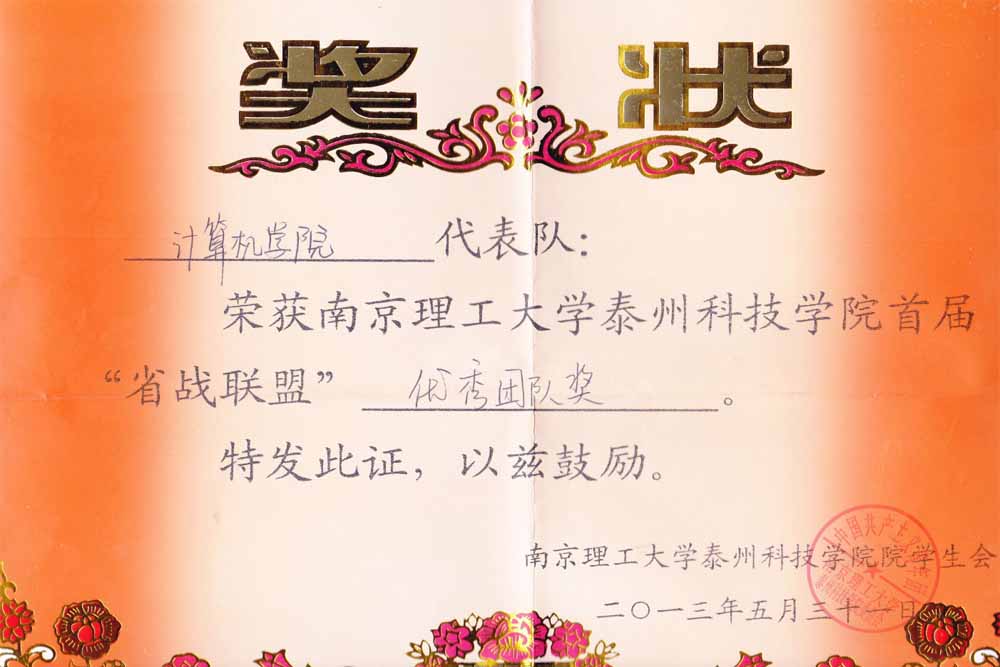 奖状
计算机学院 代表队：
荣获南京理工大学泰州科技学院首届
“省战联盟” 优秀团队奖。
特发此证，以兹鼓励。
南京理工大学泰州科技学院院学生会
二〇一三年五月三十一日